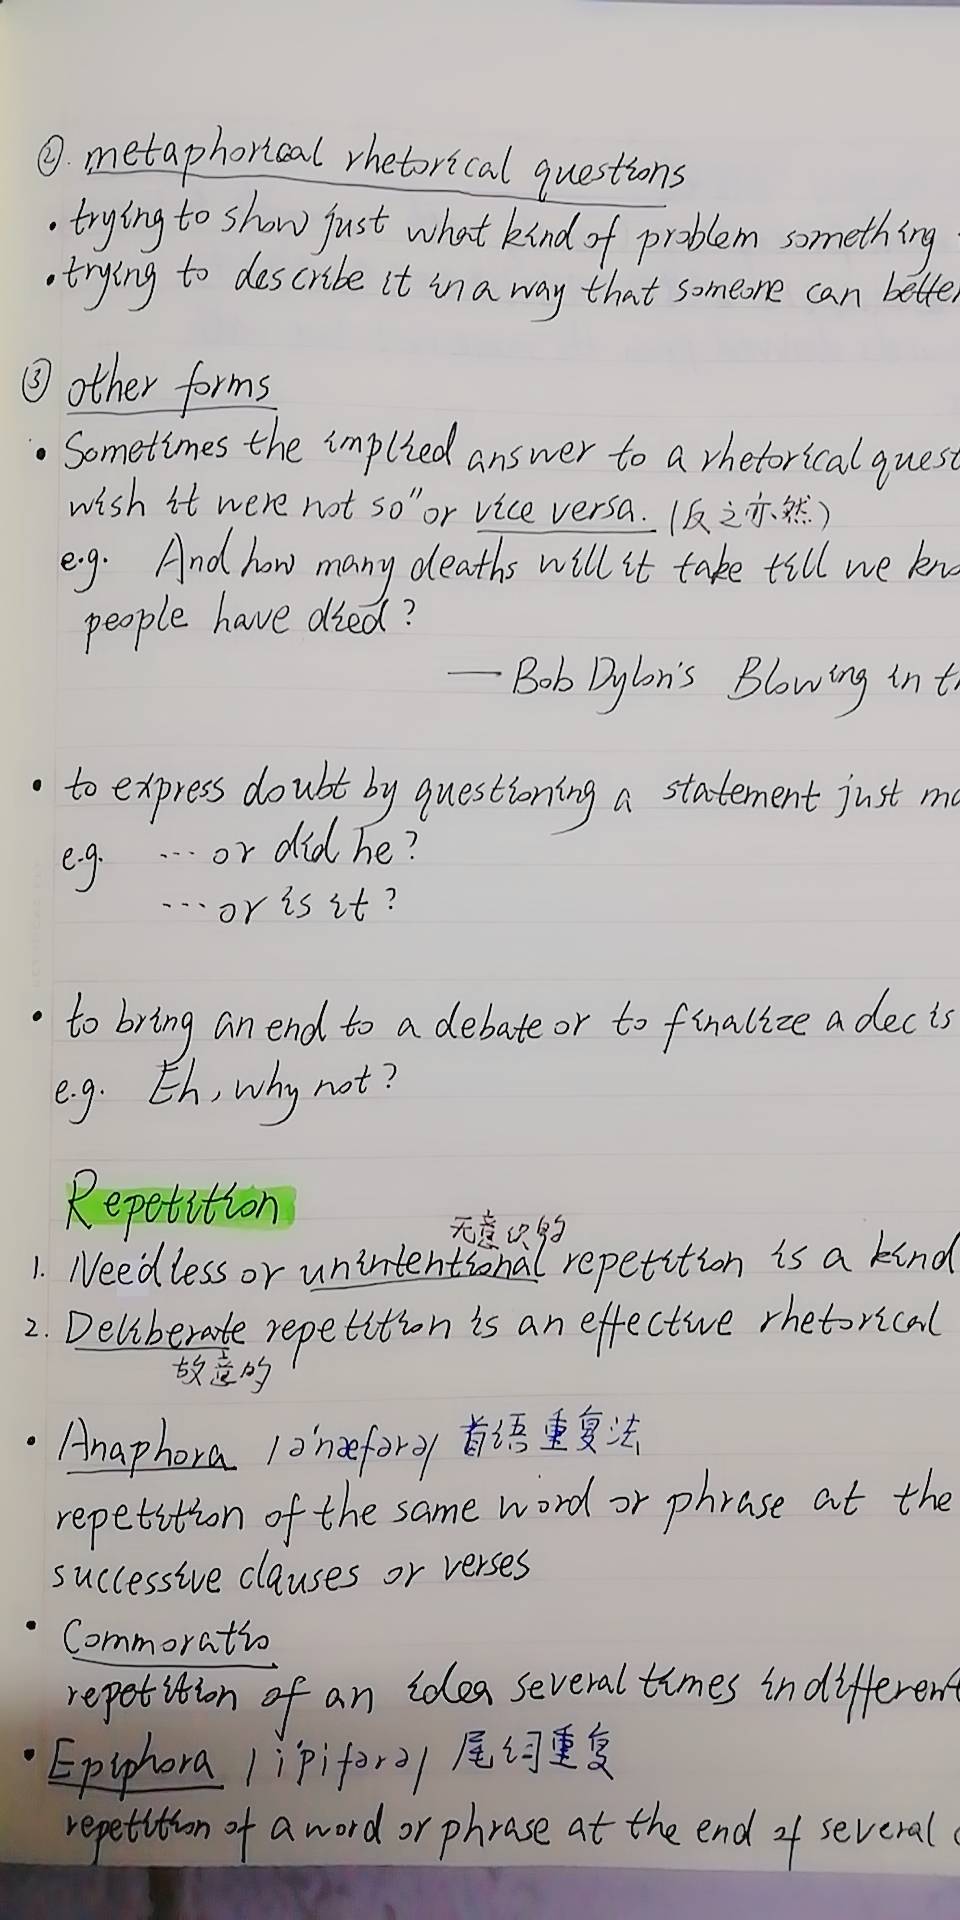 ②. metaphorical rhetorical questions
· trying to show just what kind of problem something
· trying to describe it in a way that someone can better
③ other forms
· Sometimes the implied answer to a rhetorical quest
wish it were not so" or vice versa. (反之亦然)
e.g. And how many deaths will it take till we kno
people have died?
— Bob Dylan's Blowing in th
· to express doubt by questioning a statement just ma
e.g. ... or did he?
... or is it?
· to bring an end to a debate or to finalize a decis
e.g. Eh, why not?
Repetition
无意识的
1. Needless or unintentional repetition is a kind
2. Deliberate repetition is an effective rhetorical
故意的
· Anaphora /ə'næfərə/ 首语重复法
repetition of the same word or phrase at the
successive clauses or verses
· Commoratio
repetition of an idea several times in different
· Epiphora /i'pifərə/ 尾词重复
repetition of a word or phrase at the end of several